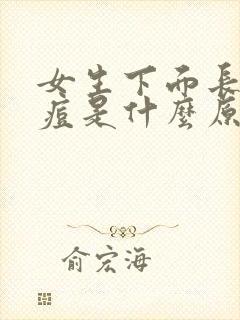 女生下而長
痘是什麼原
俞宏海